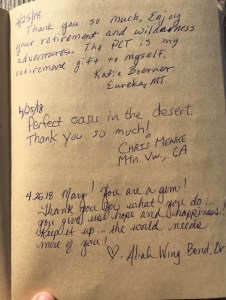 4/25/18
Thank you so much, Enjoy
your retirement and wilderness
adventures. The PCT is my
retirement gift to myself.
Katie Boerner
Eureka, MT.
4/25/18
Perfect oasis in the desert.
Thank you so much!
CHRIS
Mtn. Vw., CA
4.26.18 Mary! You are a gem!
Thank you for what you do...
you give us hope and happiness!
Keep it up... the world needs
more of you!
♡. Aliah Wing Bend, Or